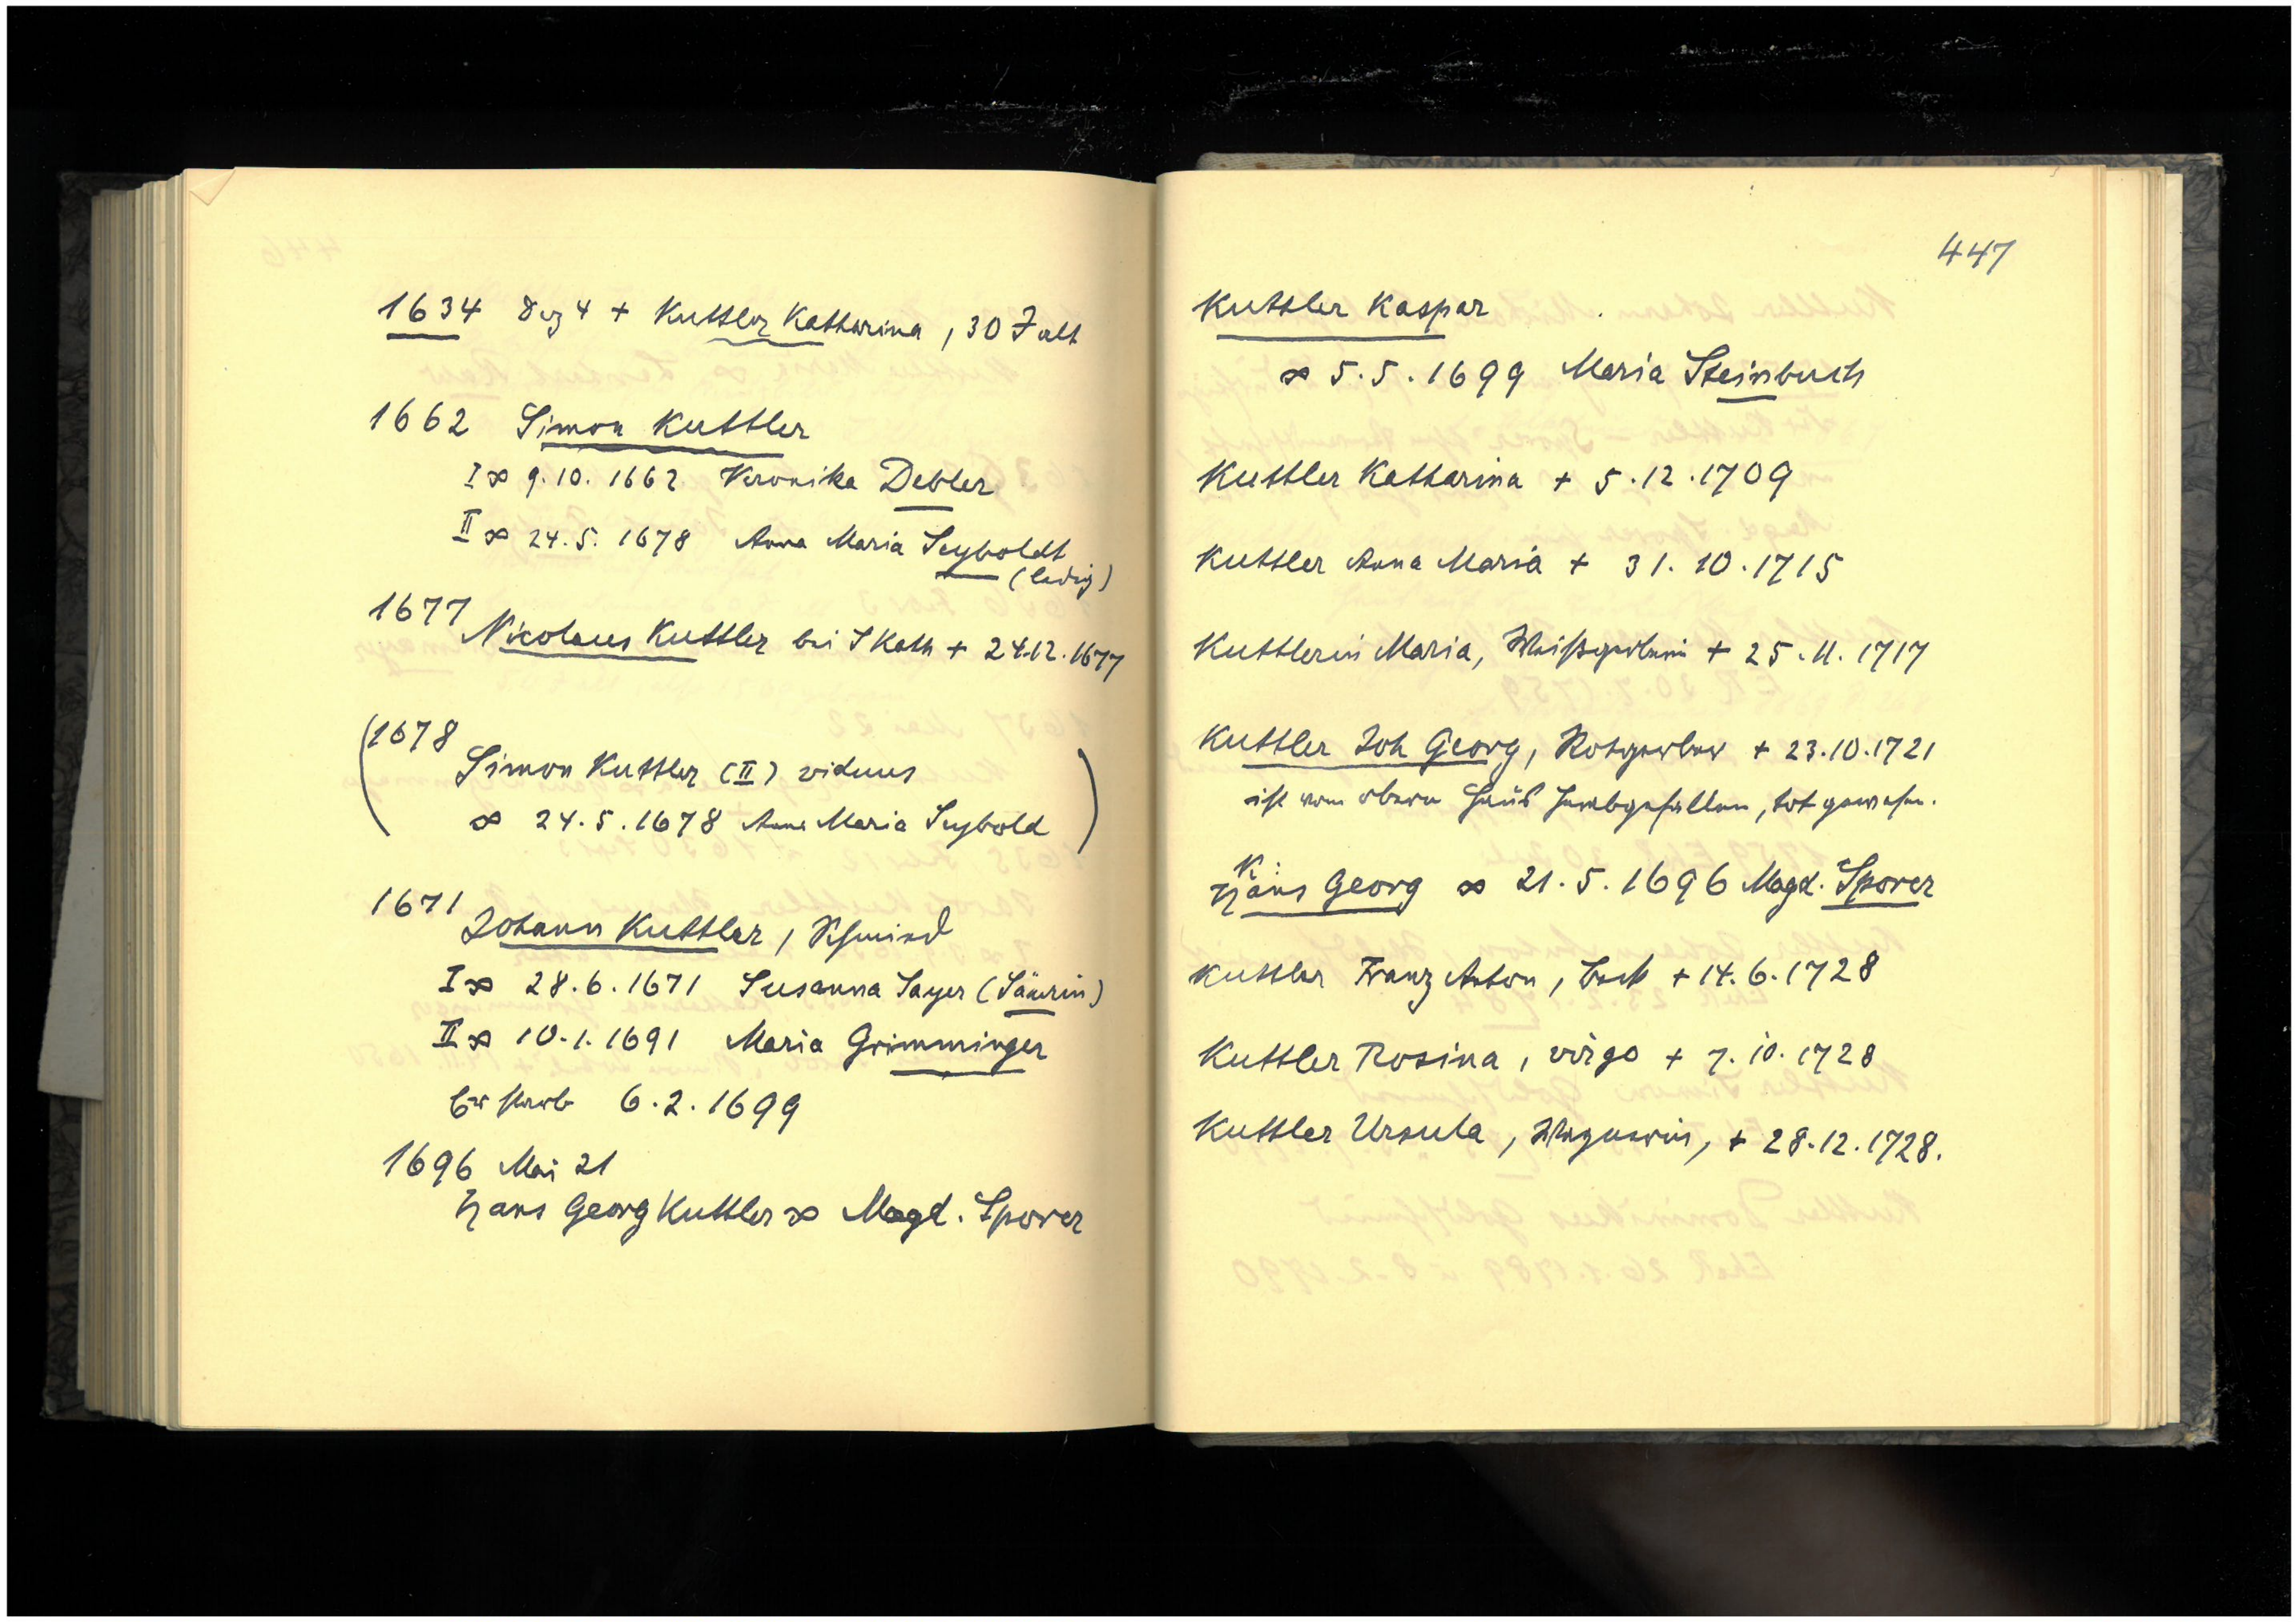 1634 Dez 4 + Kuttler Katharina, 30 J alt
1662 Simon Kuttler
I ∞ 9.10.1662 Veronika Debler
II ∞ 24.5.1678 Anna Maria Seyboldt
(ledig)
1677
Nicolaus Kuttler bei S Kath + 24.12.1677
(1678
Simon Kuttler (II) viduus
∞ 24.5.1678 Anna Maria Seybold )
1671
Johann Kuttler, Schmied
I ∞ 28.6.1671 Susanna Sayer (Säurin)
II ∞ 10.1.1691 Maria Grimminger
Er starb 6.2.1699
1696 Mai 21
Hans Georg Kuttler ∞ Magd. Sporer
447
Kuttler Kaspar
∞ 5.5.1699 Maria Steinbuch
Kuttler Katharina + 5.12.1709
Kuttler Anna Maria + 31.10.1715
Kuttlerin Maria, Weißgerberin + 25.11.1717
Kuttler Joh Georg, Rotgerber + 23.10.1721
ist vom obern Haus herabgefallen, tot gewesen.
K.
Hans Georg ∞ 21.5.1696 Magd. Sporer
Kuttler Franz Anton, Beck + 14.6.1728
Kuttler Rosina, virgo + 7.10.1728
Kuttler Ursula, Wagnerin, + 28.12.1728.